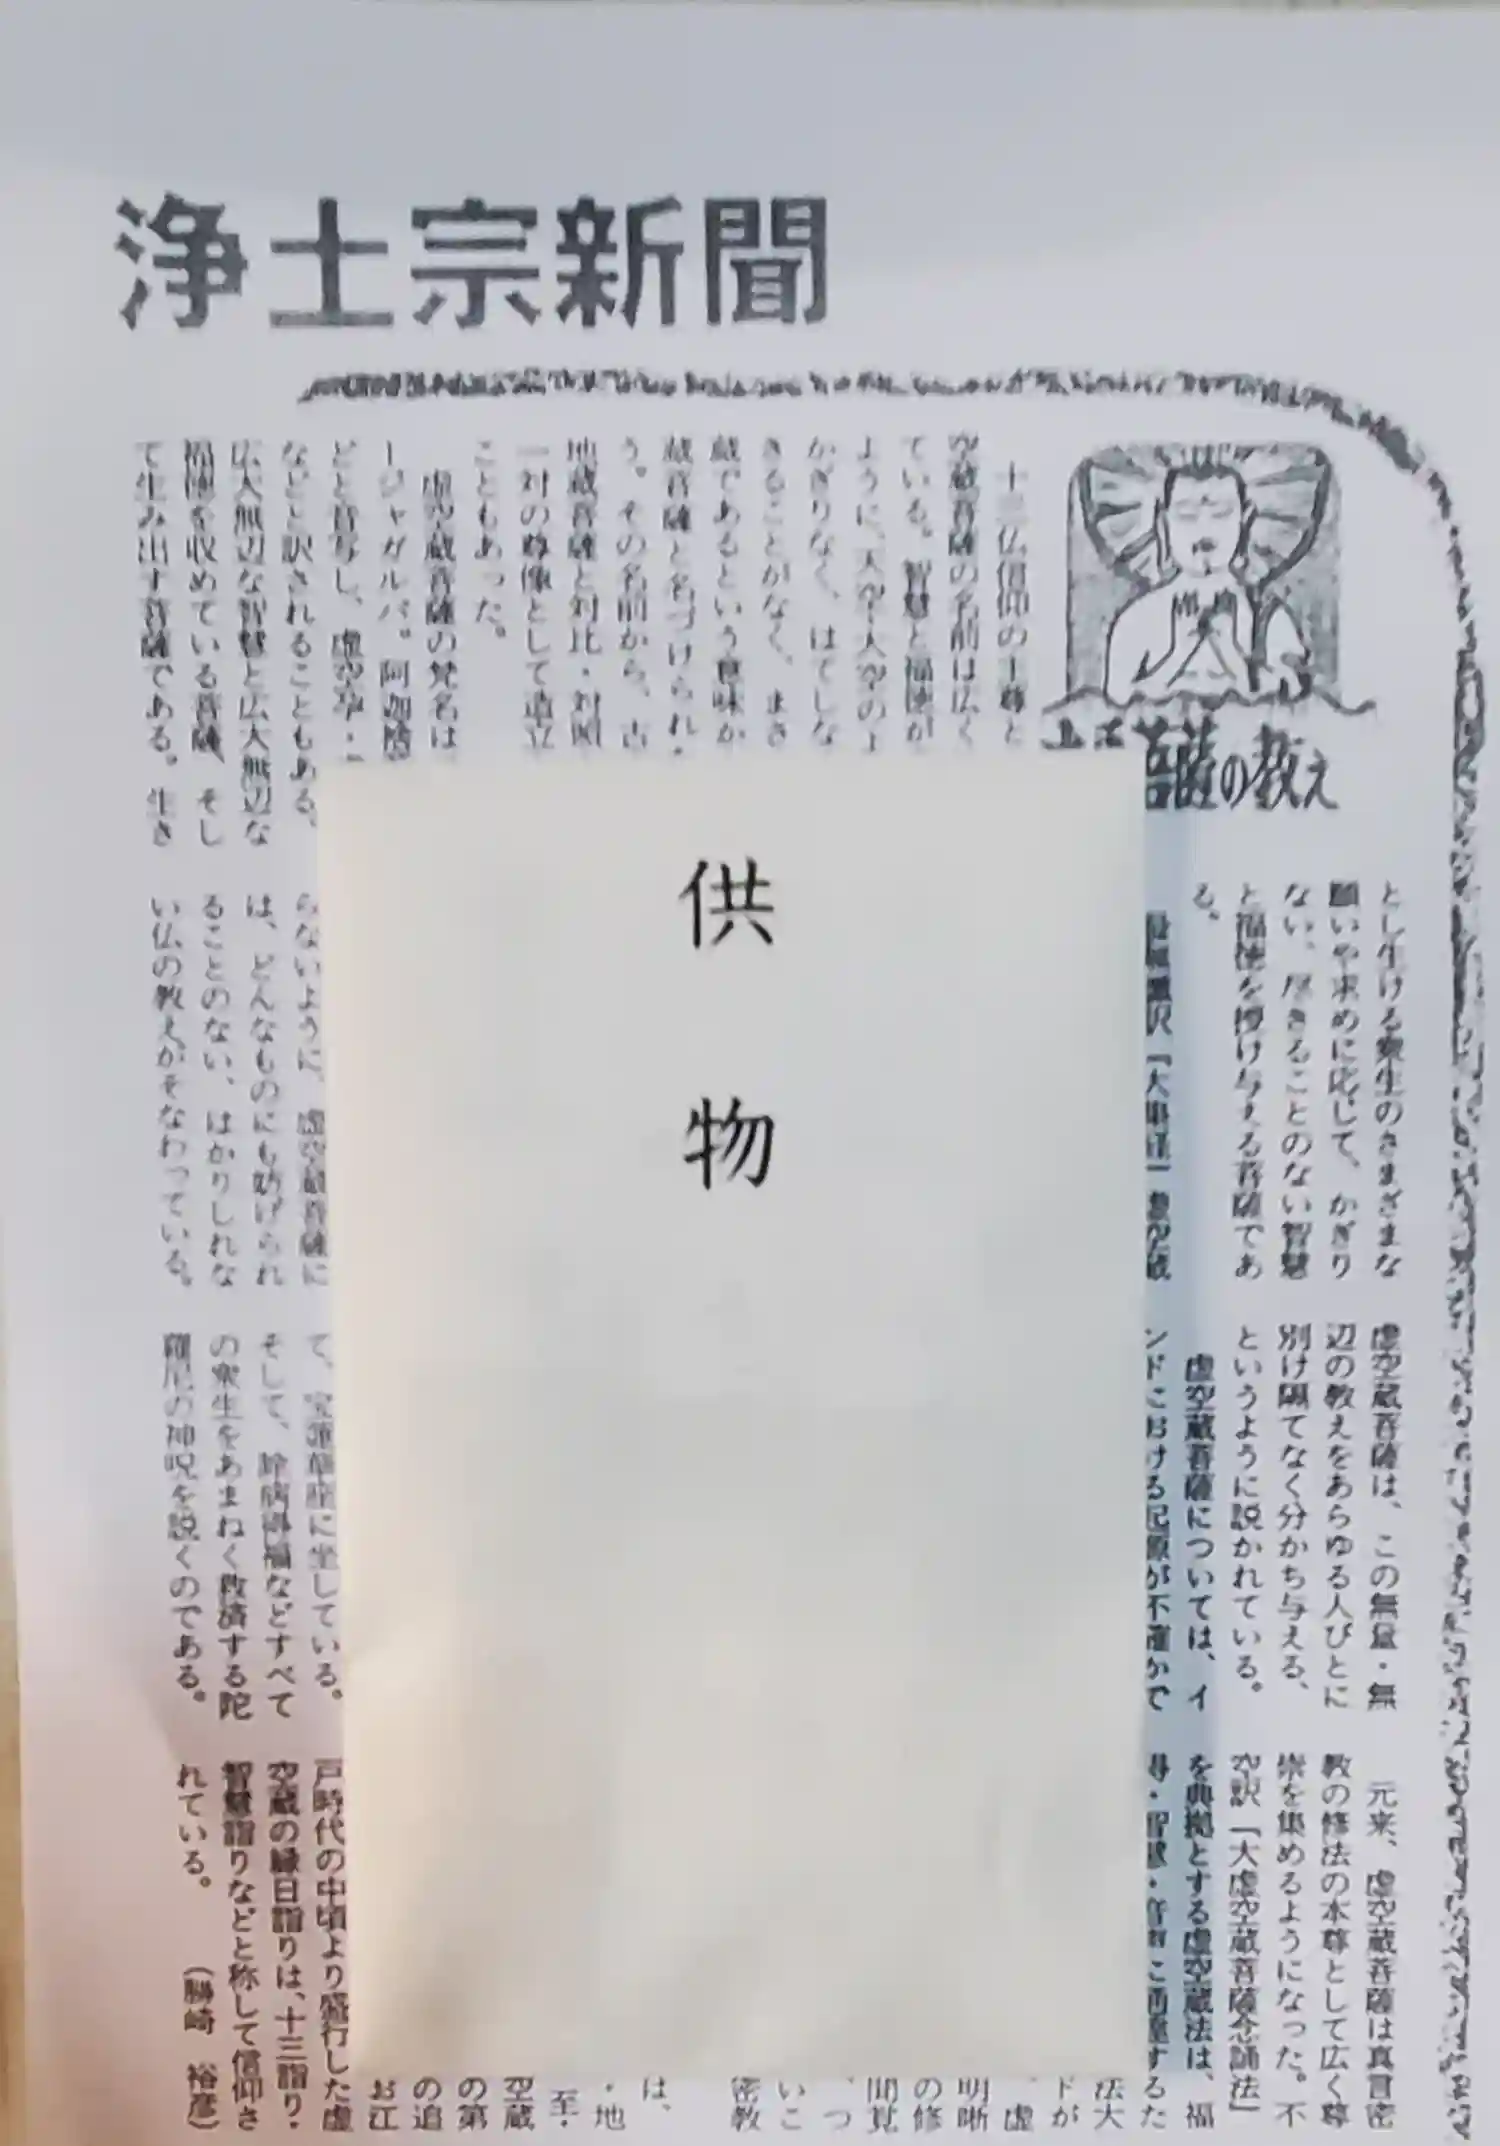 浄土宗新聞
菩薩の教え
十三仏信仰の十尊と
空蔵菩薩の名前は広く
ている。智慧と福徳が
ように、大空が大空のよ
かぎりなく、はてしな
きることがなく、まさ
蔵であるという意味か
蔵菩薩と名づけられ・
う。その名前から、古
地蔵菩薩と対比・対照
一対の尊像として造立
こともあった。
虚空蔵菩薩の梵名は
ージャガルバ。阿迦
どと音写し、虚空孕・
などと訳されることもある。
広大無辺な智慧と広大無辺な
福徳を収めている菩薩、そし
て生み出す菩薩である。生き
とし生ける衆生のさまざまな
願いや求めに応じて、かぎり
ない、尽きることのない智慧
と福徳を授け与える菩薩であ
る。
供物
らないように、虚空蔵菩薩に
は、どんなものにも妨げられ
ることのない、はかりしれな
い仏の教えがそなわっている。
虚空蔵菩薩は、この無量・無
辺の教えをあらゆる人びとに
別け隔てなく分かち与える、
というように説かれている。
虚空蔵菩薩については、イ
ンドにおける起源が不確かで
て、宝蓮華座に坐している。
そして、除病得福などすべて
の衆生をあまねく救済する陀
羅尼の神呪を説くのである。
元来、虚空蔵菩薩は真言密
教の修法の本尊として広く尊
崇を集めるようになった。不
空訳「大虚空蔵菩薩念誦法」
を典拠とする虚空蔵法は、福
するた
法大
ドが
虚
明晰
の修
聞覚
、つ
いこ
密教
は、
・地
至・
空蔵
の第
の追
お江
戸時代の中頃より盛行した虚
空蔵の縁日詣りは、十三詣り・
智慧詣りなどと称して信仰さ
れている。
(勝崎 裕彦)